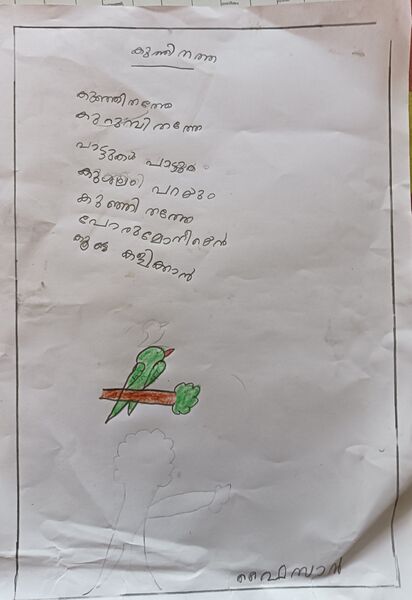 കുഞ്ഞിതത്ത
കുഞ്ഞിതത്തേ
കുറുമ്പിതത്തേ
പാട്ടുകൾ പാടും
കുശലം പറയും
കുഞ്ഞി തത്തേ
പോരുമോനീയെൻ
കൂടെ കളിക്കാൻ
ഫൈസാൻ